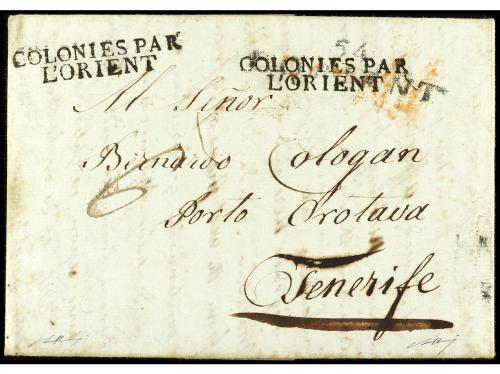 COLONIES PAR
L'ORIENT
54
COLONIES PAR
L'ORIENT
NT
Al Señor
Bernardo Cologan
6
Porto Orotava
Tenerife